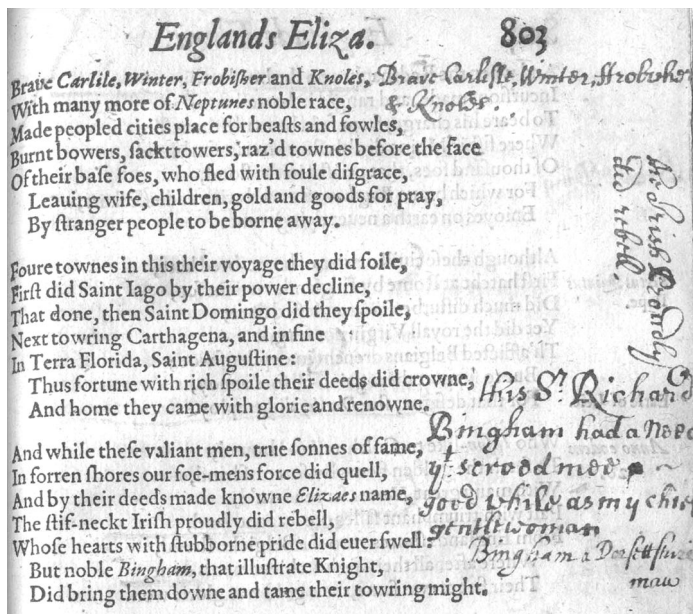 Englands Eliza. 803
Brave Carlile, Winter, Frobiſher and Knoles,
With many more of Neptunes noble race,
Made peopled cities place for beaſts and fowles,
Burnt bowers, ſackt towers, raz'd townes before the face
Of their baſe foes, who fled with foule diſgrace,
Leauing wife, children, gold and goods for pray,
By ſtranger people to be borne away.
Foure townes in this their voyage they did foile,
Firſt did Saint Iago by their power decline,
That done, then Saint Domingo did they ſpoile,
Next towring Carthagena, and in fine
In Terra Florida, Saint Auguſtine:
Thus fortune with rich ſpoile their deeds did crowne,
And home they came with glorie and renowne.
And while theſe valiant men, true ſonnes of fame,
In forren ſhores our foe-mens force did quell,
And by their deeds made knowne Elizaes name,
The ſtif-neckt Iriſh proudly did rebell,
Whoſe hearts with ſtubborne pride did euer ſwell:
But noble Bingham, that illuſtrate Knight,
Did bring them downe and tame their towring might.
Brave Carliſle, Winter,
& Knoles.
the Irish Proudly
did rebell.
this Sr. Richard
Bingham had a
good
gentlewoman
Bingham a
man